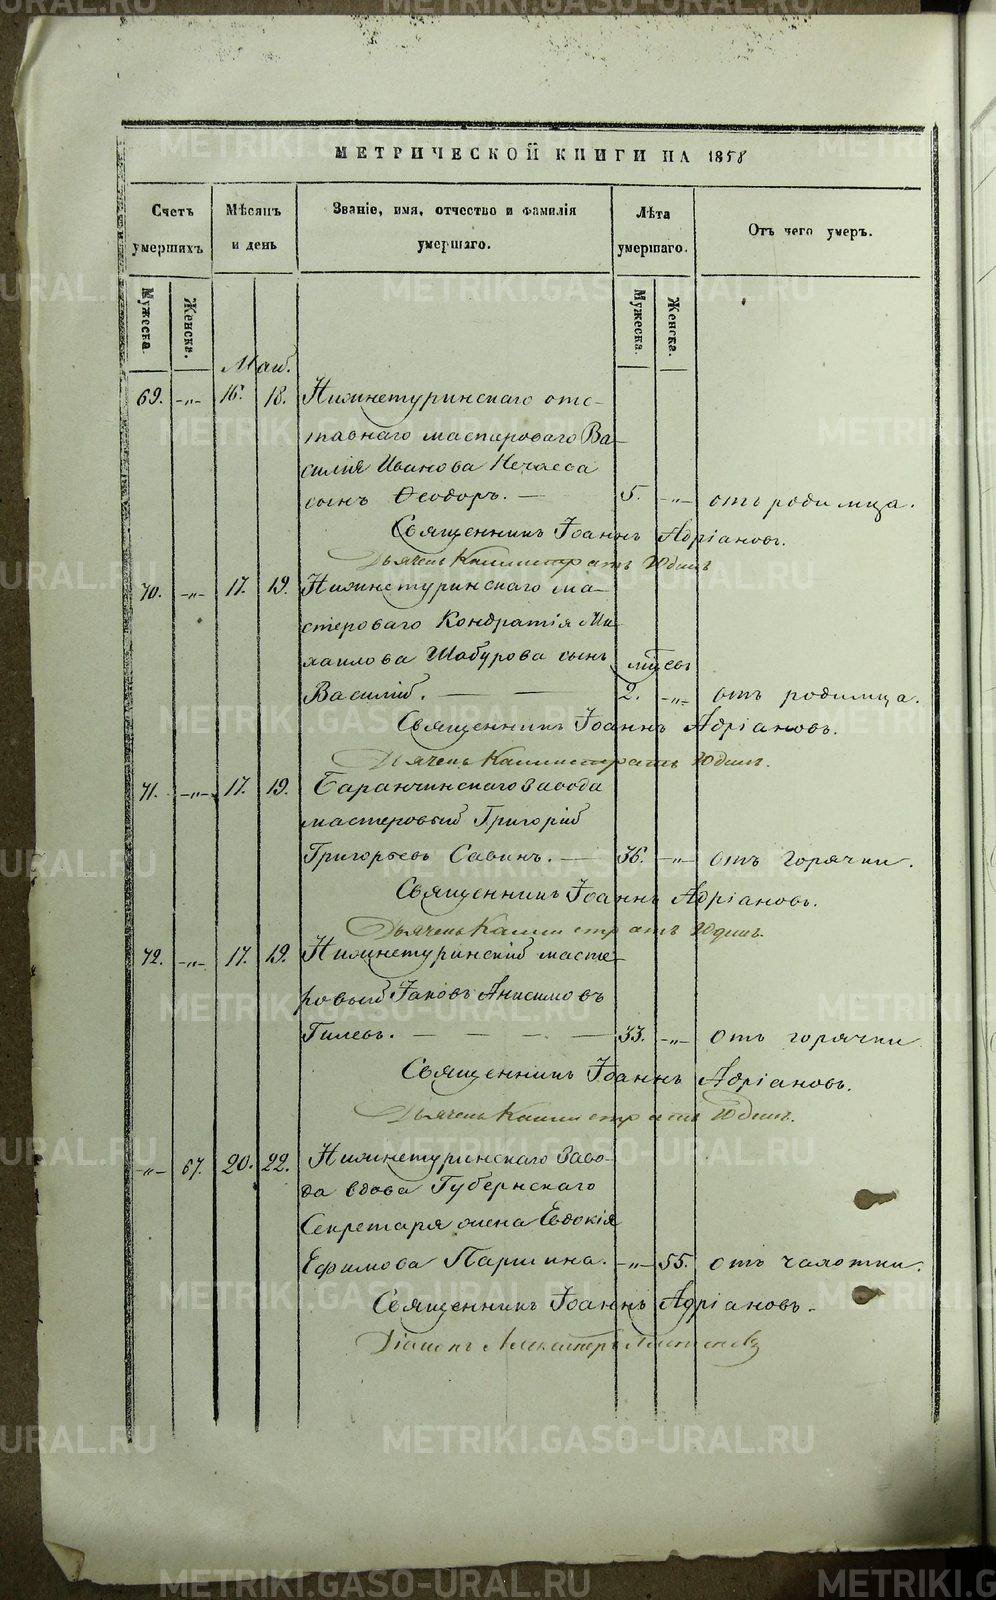 МЕТРИЧЕСКОЙ КНИГИ НА 1858
Счетъ умершихъ
Мѣсяцъ и день
Званіе, имя, отчество и фамилія умершаго.
Лѣта умершаго.
Отъ чего умеръ.
Мужеска.
Женска.
Мужеска.
Женска.
Маій.
69. -„- 16. 18. Нижнетуринскаго отс-
тавнаго мастероваго Ва-
силія Иванова Нечаева
сынъ Ѳеодоръ. — 5. -„- отъ родимца.
Священникъ Іоаннъ Адріановъ.
Дьячекъ Калистратъ Юдинъ
70. -„- 17. 19. Нижнетуринскаго ма-
стероваго Кондратія Ми-
хаилова Шабурова сынъ мѣсяц
Василій. — — 2. -„- отъ родимца.
Священникъ Іоаннъ Адріановъ.
Дьячекъ Калистратъ Юдинъ.
71. -„- 17. 19. Баранчинскаго завода
мастеровый Григорій
Григорьевъ Савинъ. — 36. -„- отъ горячки.
Священникъ Іоаннъ Адріановъ.
Дьячекъ Калистратъ Юдинъ.
72. -„- 17. 19. Нижнетуринскій масте-
ровый Іаковъ Анисимовъ
Гилевъ. — — — — 33. -„- отъ горячки
Священникъ Іоаннъ Адріановъ.
Дьячекъ Калистратъ Юдинъ.
-„- 67. 20. 22. Нижнетуринскаго Заво-
да вдова Губернскаго
Секретаря жена Евдокія
Ефимова Паршина. -„- 55. отъ чахотки.
Священникъ Іоаннъ Адріановъ.
Діаконъ Александръ